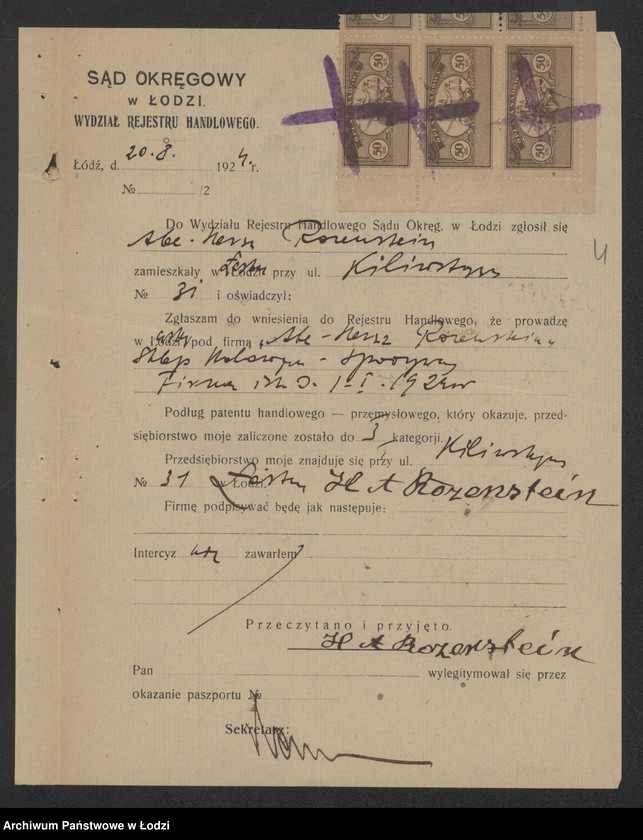 SĄD OKRĘGOWY
w ŁODZI.
WYDZIAŁ REJESTRU HANDLOWEGO.
Łódź, d. 20.8. 1924 r.
№ /2
50 50 50
Do Wydziału Rejestru Handlowego Sądu Okręg. w Łodzi zgłosił się
Abe-Hersz Rozenstein
zamieszkały w Łodzi przy ul.
№ 31 i oświadczył:
Zgłaszam do wniesienia do Rejestru Handlowego, że prowadzę
w Łodzi pod firmą „Abe-Hersz Rozenstein„
Sklep
Firma 1-I-192
Podług patentu handlowego — przemysłowego, który okazuje, przed-
siębiorstwo moje zaliczone zostało do 3 kategorji.
Przedsiębiorstwo moje znajduje się przy ul.
№ 31 w Łodzi. H A Rozenstein
Firmę podpisywać będę jak następuje:
Intercyz nie zawarłem
Przeczytano i przyjęto.
H A Rozenstein
Pan wylegitymował się przez
okazanie paszportu №
Sekretarz:
4
Archiwum Państwowe w Łodzi